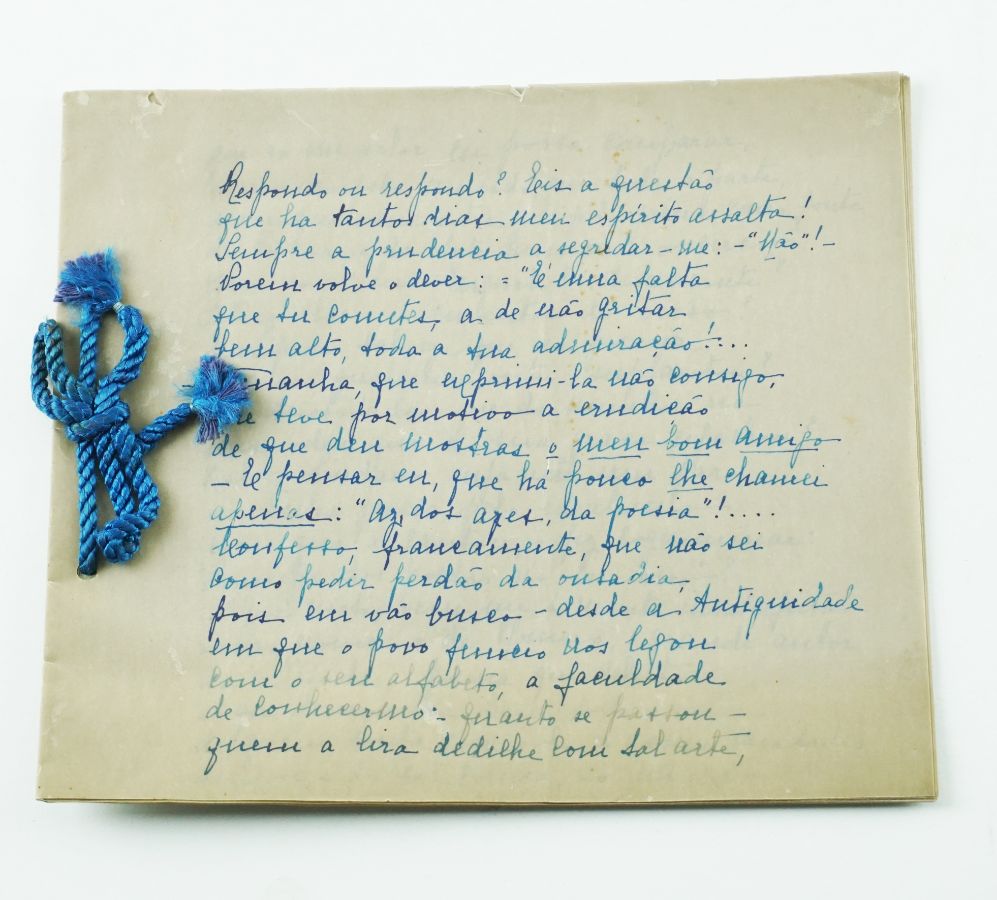 Respondo ou respondo? Eis a questão
que ha tantos dias meu espírito assalta!
Sempre a prudencia a segredar-me: - "Não"! -
Porem volve o dever: = "É uma falta
que tu cometes, a de não gritar
bem alto, toda a tua admiração!...
que exprimi-la não consigo,
teve por motivo a erudição
de que deu mostras o meu bom amigo
- E pensar eu, que há pouco lhe chamei
apenas: "Az, dos azes, da poesia"!....
Confesso, francamente, que não sei
como pedir perdão da ousadia,
pois em vão busco - desde a Antiguidade
em que o povo fenicio nos legou
com o seu alfabeto, a faculdade
de conhecermos - quanto se passou -
quem a lira dedilhe com tal arte,